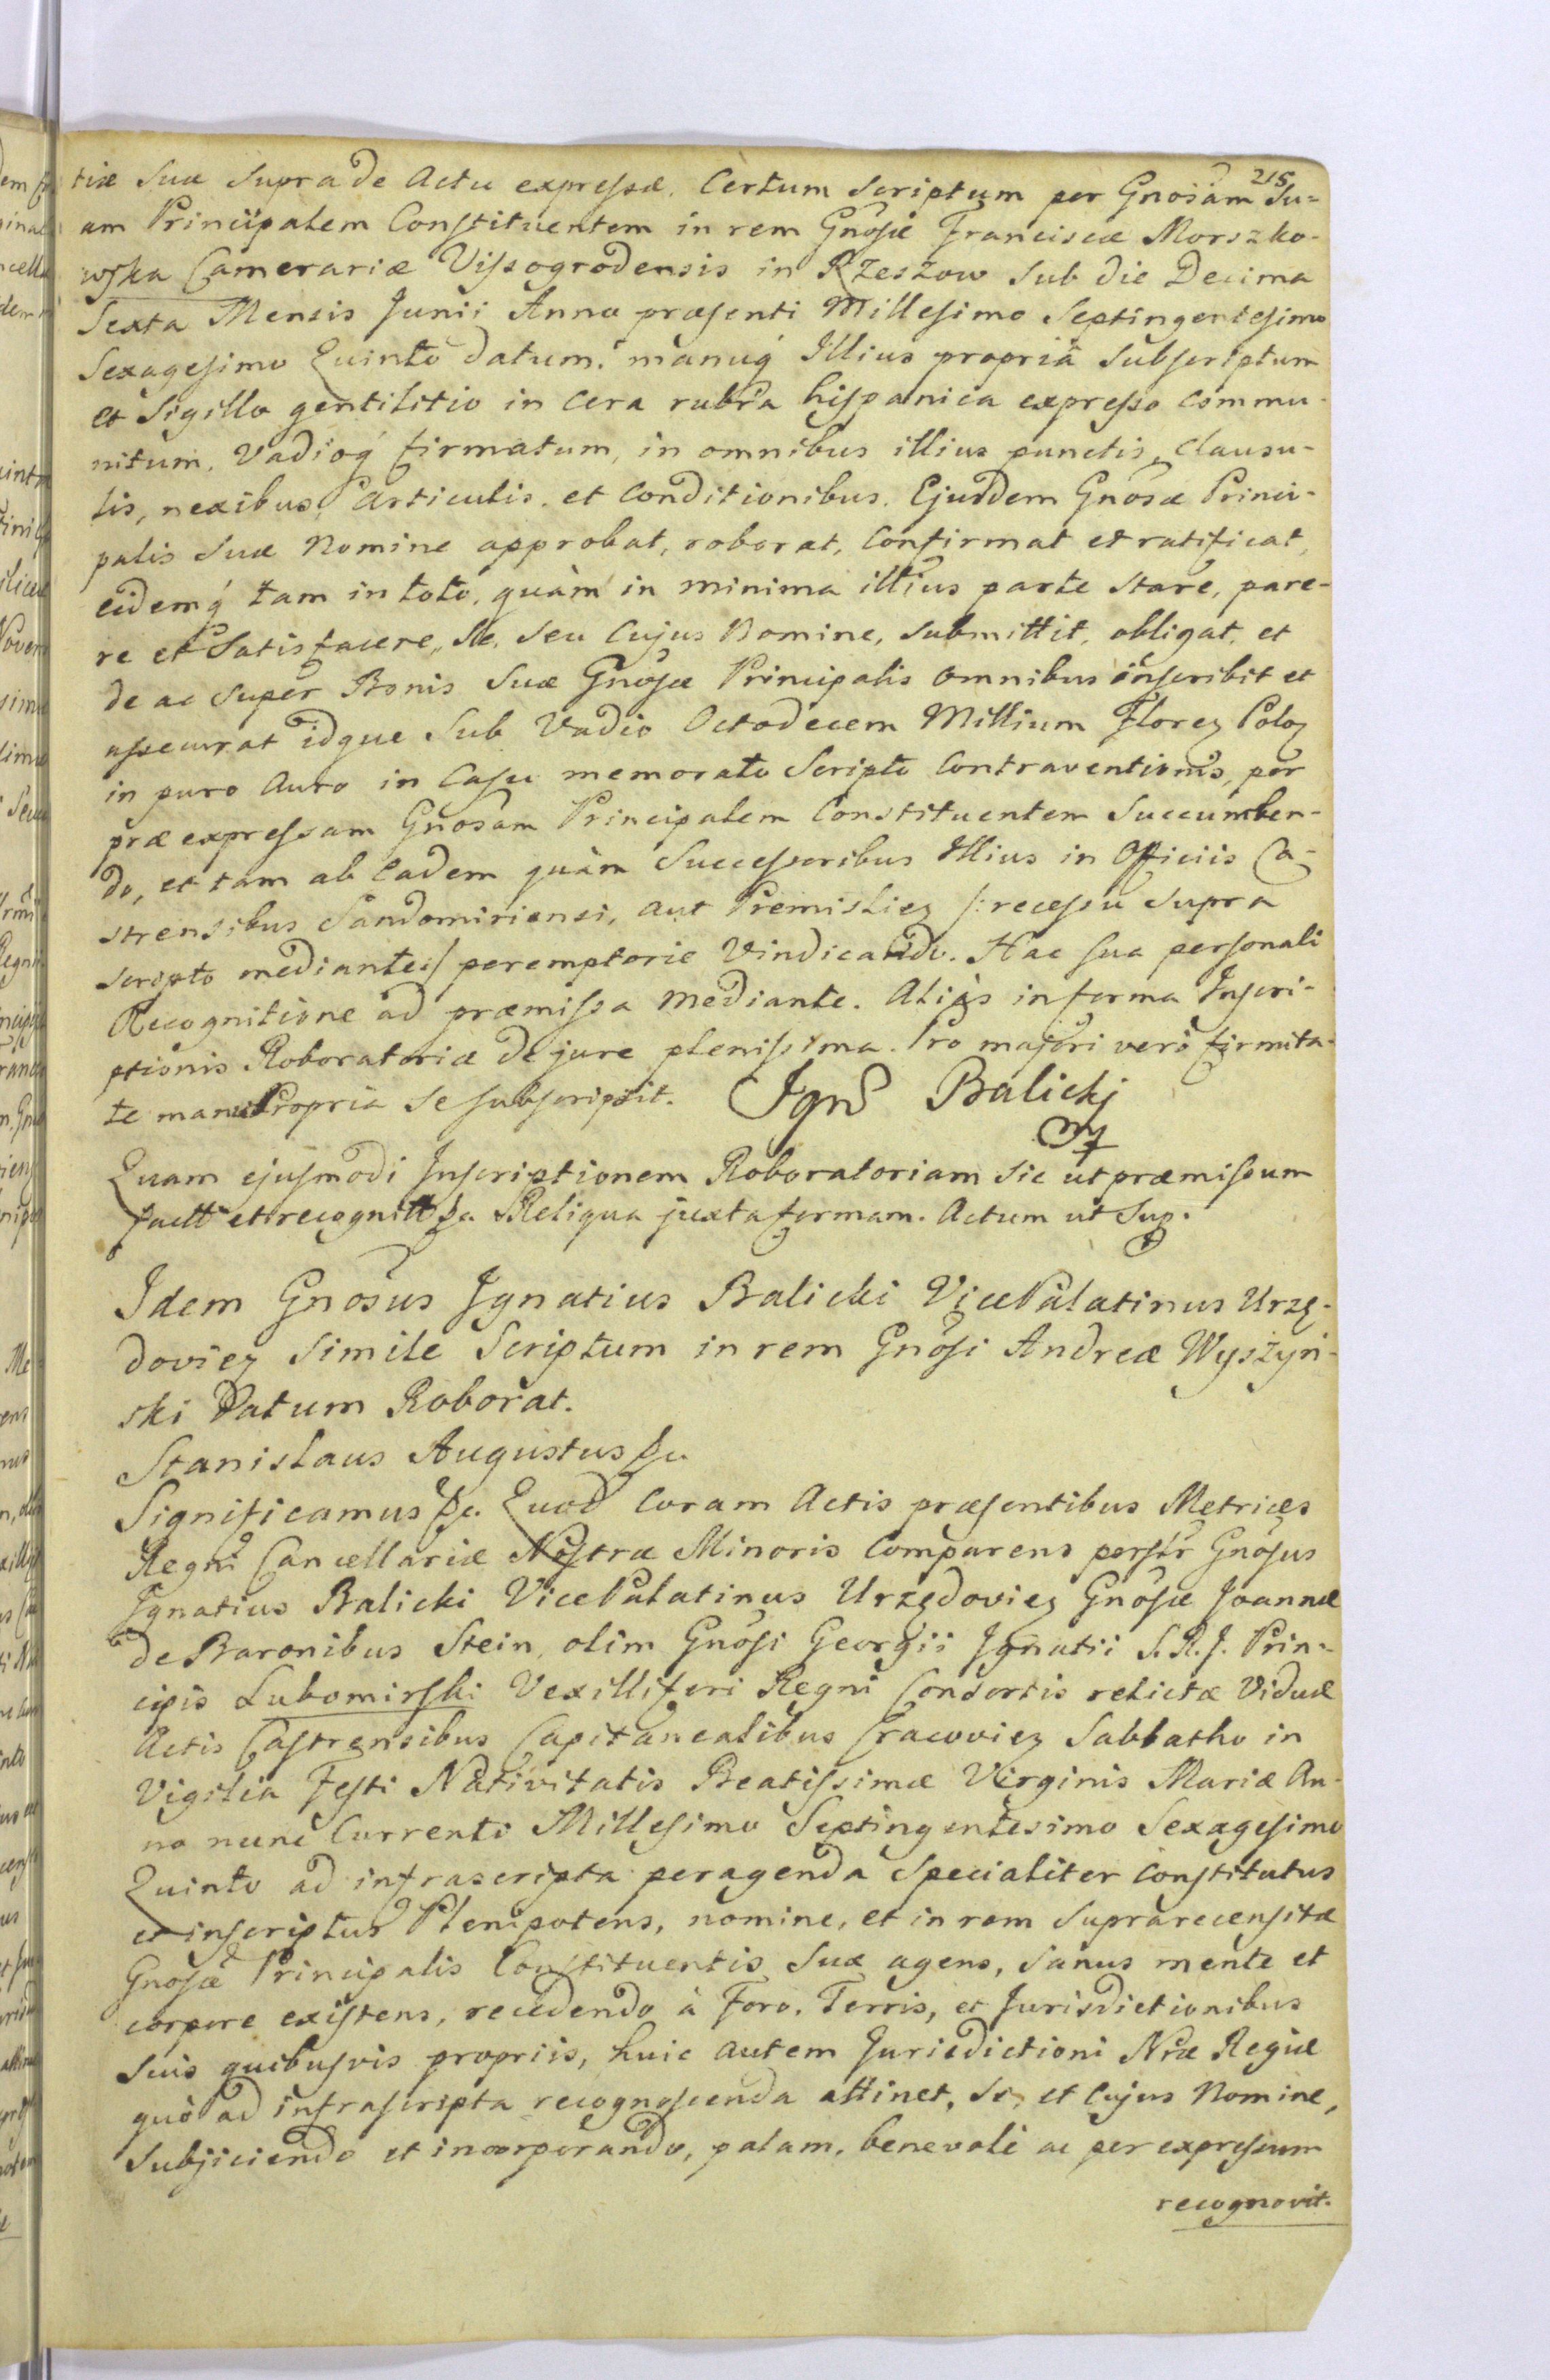 215
tiæ Suæ Supra de Actu expressæ. Certum Scriptum per Gnosam Su=
am Principalem Constituentem in rem Gnosæ Franciscæ Morszko-
wska Camerariæ Vissogrodensis in Rzeszow Sub die Decima
Sexta Mensis Junii Anno præsenti Millesimo Septingentesimo
Sexagesimo Quinto datum. manuq́ Illius propriâ Subscriptum
et Sigillo gentilitio in Cera rubra hispanica expresso Commu-
nitum, Vadioq́ firmatum, in omnibus illius punctis, Clausu-
lis, nexibus Articulis. et Conditionibus. Ejusdem Gnosæ Princi-
palis Suæ Nomine approbat, roborat, Confirmat et ratificat,
eidemq́ tam in toto, quàm in minima illius parte Stare, pare-
re et Satisfacere, Se, Seu Cujus Nomine, Submittit, obligat, et
de ac Super Bonis Suæ Gnosæ Principalis Omnibus inscribit et
assecurat idque Sub Vadio Octodecem Millium Florez Poloz
in puro Auro in Casu memorato Scripto Contraventionis, per
præexpressam Gnosam Principalem Constituentem Succumben-
do, et tam ab Eadem quàm Successoribus Illius in Officiis Ca-
strensibus Sandomiriensi, aut Premisliez /: recessu Supra
scripto mediante:/ peremptorie Vindicando. Hac Sua personali
Recognitione ad præmissa Mediante. Aliàs in forma Inscri-
ptionis Roboratoriæ de jure plenissima. Pro majori verò firmita-
te manu Propria Se Subscripsit. Ign͠ Balickj
mp
Quam ejusmodi Inscriptionem Roboratoriam Sic ut præmissum
factt et recognitt &c. Reliqua juxta formam. Actum ut Sup.
Idem Gnosus Ignatius Balicki VicePalatinus Urzę-
doviez Simile Scriptum in rem Gnosi Andreæ Wyszyń-
ski Datum Roborat.
Stanislaus Augustus &c.
Significamus &c. Quod Coram Actis præsentibus Metrices
Regni Cancellariæ Nostræ Minoris Comparens perslr Gnosus
Ignatius Balicki VicePalatinus Urzędoviez Gnosæ Joannæ
de Baronibus Stein, olim Gnosi Georgii Ignatii S. R. J. Prin=
cipis Lubomirski Vexilliferi Regni Consortis relictæ Viduæ
Actis Castrensibus Capitanealibus Cracoviez Sabbatho in
Vigilia Festi Nativitatis Beatissimæ Virginis Mariæ An-
no nunc Currenti Millesimo Septingentesimo Sexagesimo
Quinto ad infrascripta peragenda Specialiter Constitutus
et inscriptus Plenipotens, nomine, et in rem Suprarecensitæ
Gnosæ Principalis Constituentis Suæ agens, Sanus mente et
corpore existens, recedendo à Foro. Terris, et Jurisdictionibus
Suis quibusvis propriis, huic autem Jurisdictioni Nræ Regiæ
quò ad infrascripta recognoscenda attinet, Se, et Cujus Nomine,
Subjiciendo et incorporando, palam, benevolè ac per expressum
recognovit.